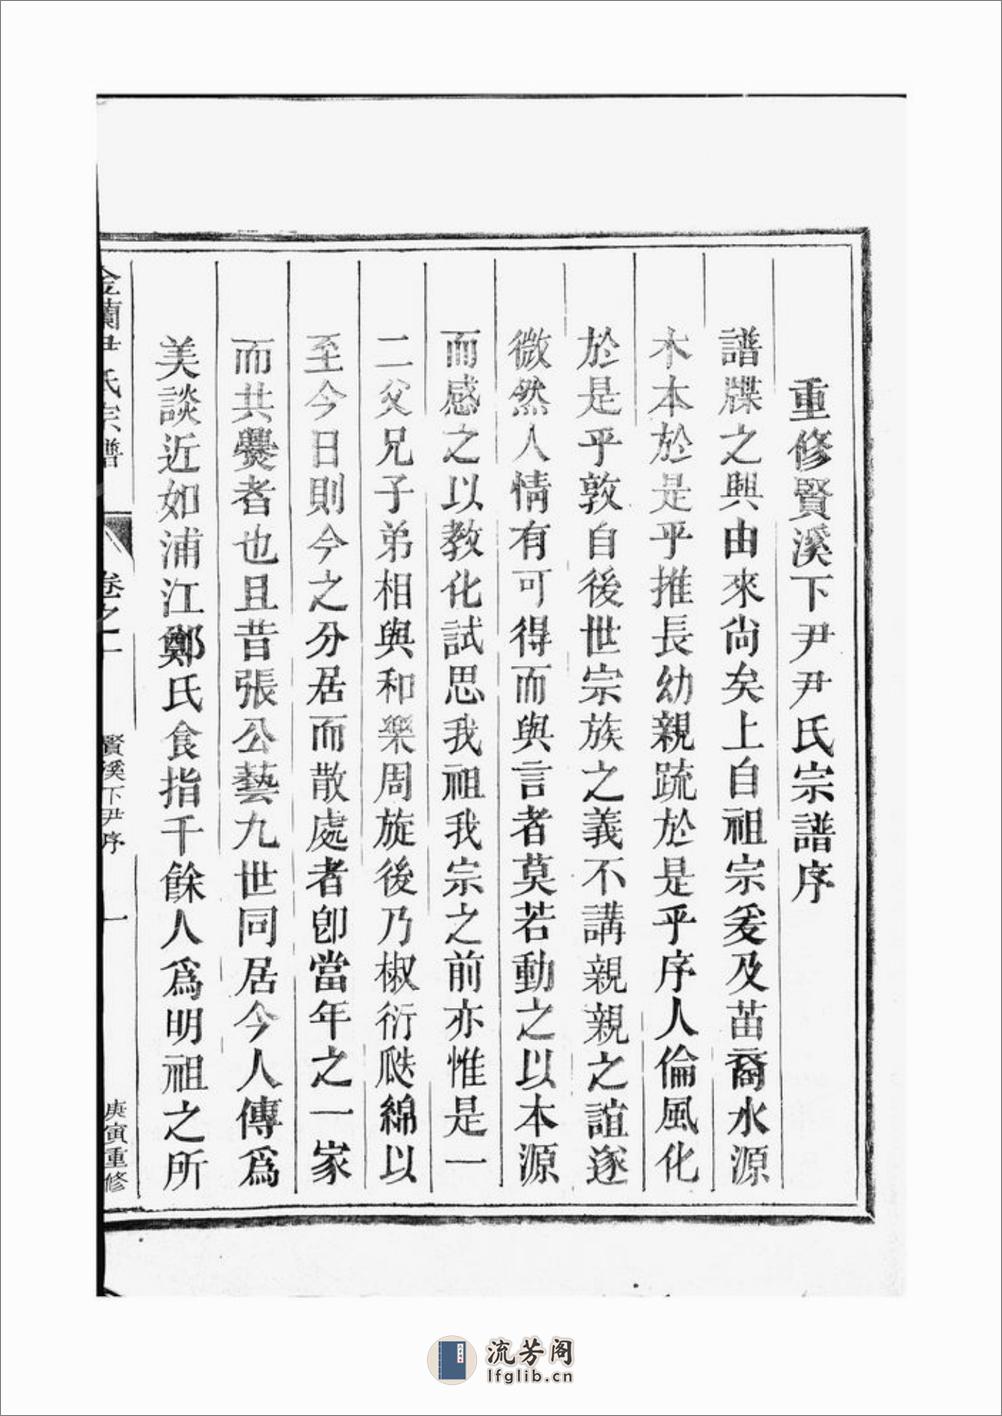 重修賢溪下尹尹氏宗譜序
譜牒之興由來尚矣上自祖宗爰及苗裔水源
木本於是乎推長幼親疏於是乎序人倫風化
於是乎敦自後世宗族之義不講親親之誼遂
微然人情有可得而與言者莫若動之以本源
而感之以教化試思我祖我宗之前亦惟是一
二父兄子弟相與和樂周旋後乃椒衍瓞綿以
至今日則今之分居而散處者卽當年之一家
而共爨者也且昔張公藝九世同居今人傳爲
美談近如浦江鄭氏食指千餘人爲明祖之所
金蘭尹氏宗譜
卷之一
賢溪下尹序
一
庚寅重修
流芳阁
lfglib.cn